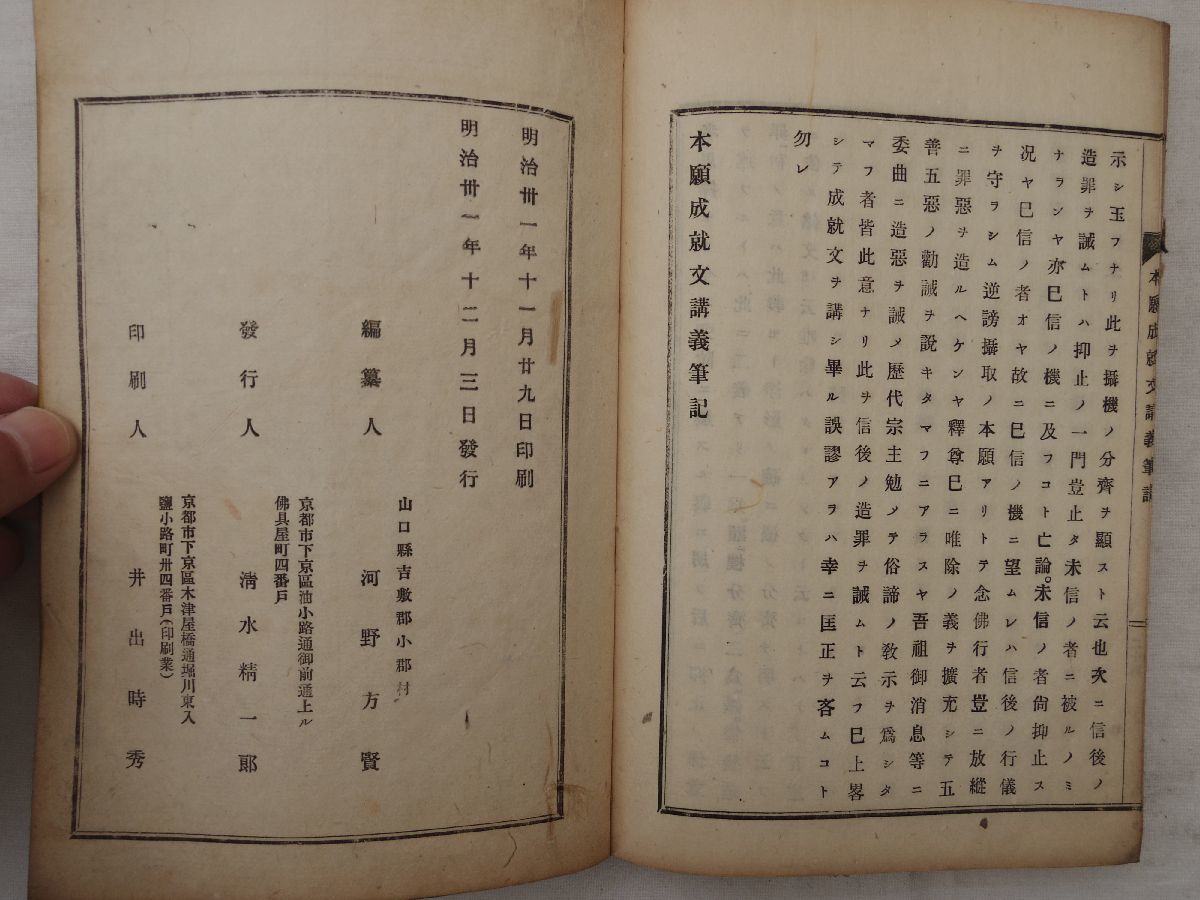 本願成就文講義筆記
示シ玉フナリ此ヲ攝機ノ分齊ヲ顯スト云也次ニ信後ノ
造罪ヲ誡ムトハ抑止ノ一門豈止タ未信ノ者ニ被ルノミ
ナランヤ亦巳信ノ機ニ及フコト亡論。未信ノ者尙抑止ス
况ヤ巳信ノ者オヤ故ニ巳信ノ機ニ望ムレハ信後ノ行儀
ヲ守ラシム逆謗攝取ノ本願アリトテ念佛行者豈ニ放縱
ニ罪惡ヲ造ルヘケンヤ釋尊巳ニ唯除ノ義ヲ擴充シテ五
善五惡ノ勸誡ヲ說キタマフニアラスヤ吾祖御消息等ニ
委曲ニ造惡ヲ誡メ歷代宗主勉メテ俗諦ノ敎示ヲ爲シタ
マフ者皆此意ナリ此ヲ信後ノ造罪ヲ誡ムト云フ巳上畧
シテ成就文ヲ講シ畢ル誤謬アラハ幸ニ匡正ヲ吝ムコト
勿レ
本願成就文講義筆記
明治卅一年十一月廿九日印刷
明治卅一年十二月三日發行
山口縣吉敷郡小郡村
編纂人 河野方賢
京都市下京區油小路通御前通上ル
佛具屋町四番戶
發行人 淸水精一郞
京都市下京區木津屋橋通堀川東入
鹽小路町卅四番戶(印刷業)
印刷人 井出時秀